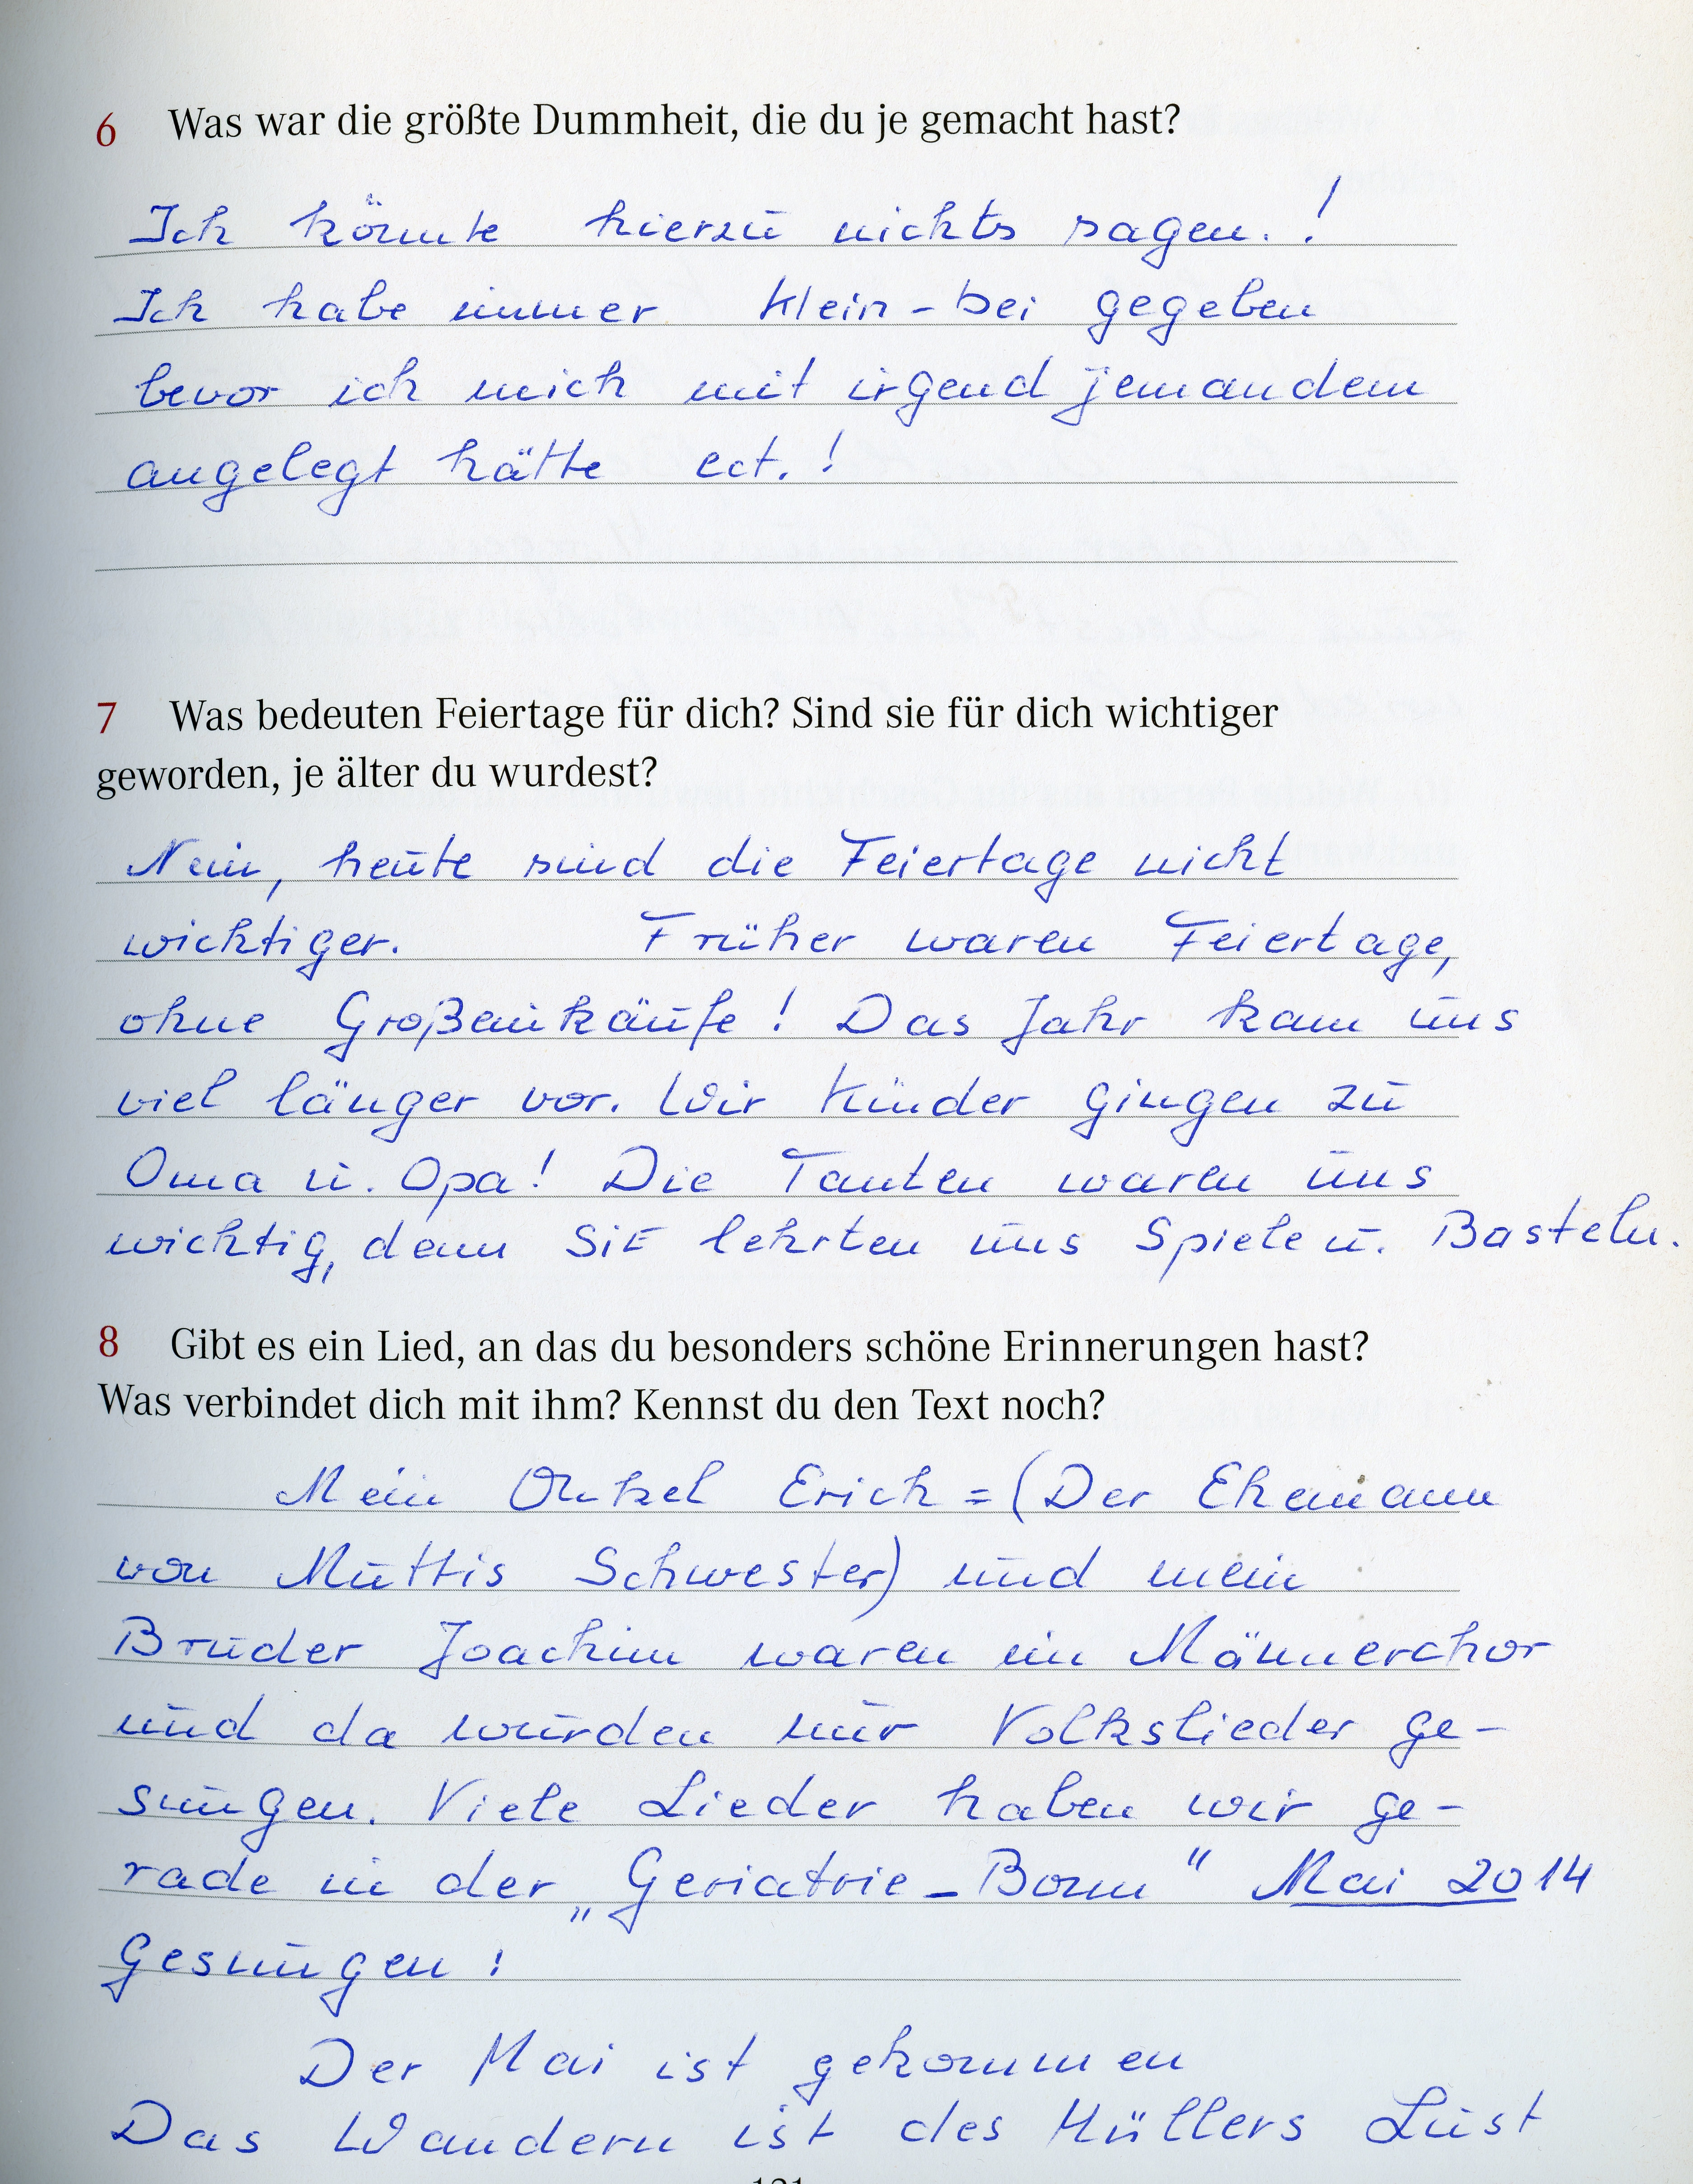 6 Was war die größte Dummheit, die du je gemacht hast?
Ich könnte hierzu nichts sagen. !
Ich habe immer klein-bei gegeben
bevor ich mich mit irgend jemandem
angelegt hätte ect. !
7 Was bedeuten Feiertage für dich? Sind sie für dich wichtiger
geworden, je älter du wurdest?
Nein, heute sind die Feiertage nicht
wichtiger. Früher waren Feiertage,
ohne Großeinkäufe! Das Jahr kam uns
viel länger vor. Wir Kinder gingen zu
Oma u. Opa! Die Tanten waren uns
wichtig, denn SiE lehrten uns Spiele u. Basteln.
8 Gibt es ein Lied, an das du besonders schöne Erinnerungen hast?
Was verbindet dich mit ihm? Kennst du den Text noch?
Mein Onkel Erich = (Der Ehemann
von Muttis Schwester) und mein
Bruder Joachim waren im Männerchor
und da wurden nur Volkslieder ge-
sungen. Viele Lieder haben wir ge-
rade in der „Geriatrie-Bonn" Mai 2014
Gesungen !
Der Mai ist gekommen
Das Wandern ist des Müllers Lust